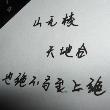 山无棱
天地合
也绝不与君上绝